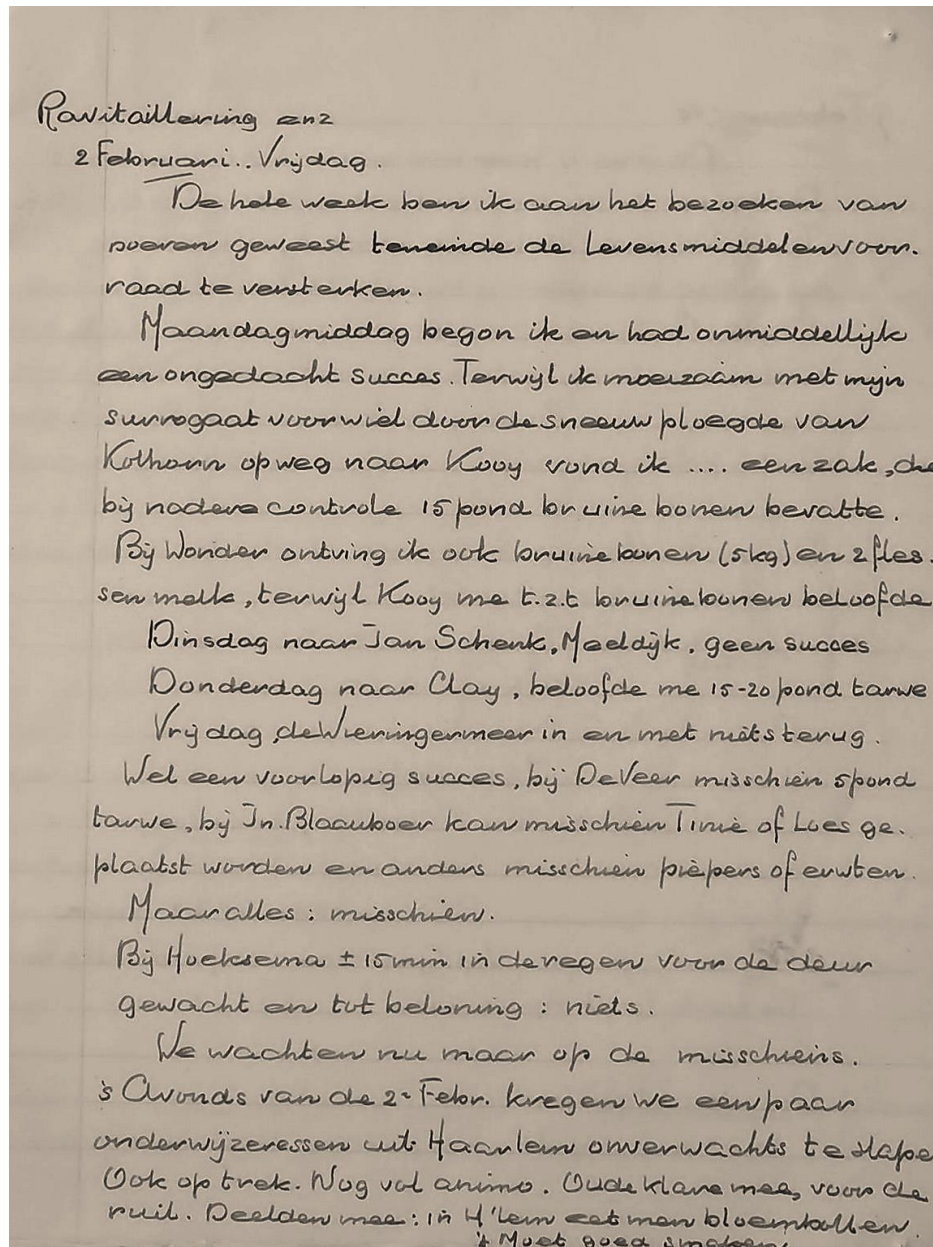 Ravitaillering enz
2 Februari.. Vrijdag.
De hele week ben ik aan het bezoeken van
boeren geweest teneinde de Levensmiddelenvoor-
raad te versterken.
Maandagmiddag begon ik en had onmiddellijk
een ongedacht succes. Terwijl ik moeizaam met mijn
surrogaat voorwiel door de sneeuw ploegde van
Kolhorn op weg naar Kooy vond ik .... een zak, die
bij nadere controle 15 pond bruine bonen bevatte.
Bij Wonder ontving ik ook bruine bonen (5 kg) en 2 fles-
sen melk, terwijl Kooy me t.z.t bruine bonen beloofde
Dinsdag naar Jan Schenk, Meeldijk, geen succes
Donderdag naar Clay, beloofde me 15-20 pond tarwe
Vrijdag, de Wieringermeer in en met niets terug.
Wel een voorlopig succes, bij De Veer misschien 5 pond
tarwe, bij Jn. Blaauboer kan misschien Timie of Loes ge-
plaatst worden en anders misschien piepers of erwten.
Maar alles: misschien.
Bij Hoeksema ± 15 min in de regen voor de deur
gewacht en tot beloning: niets.
We wachten nu maar op de misschiens.
's Avonds van de 2e Febr. kregen we een paar
onderwijzeressen uit Haarlem onverwachts te slape
Ook op trek. Nog vol animo. Oude klare mee, voor de
ruil. Deelden mee: in H'lem eet men bloembollen.
't Moet goed smaken.